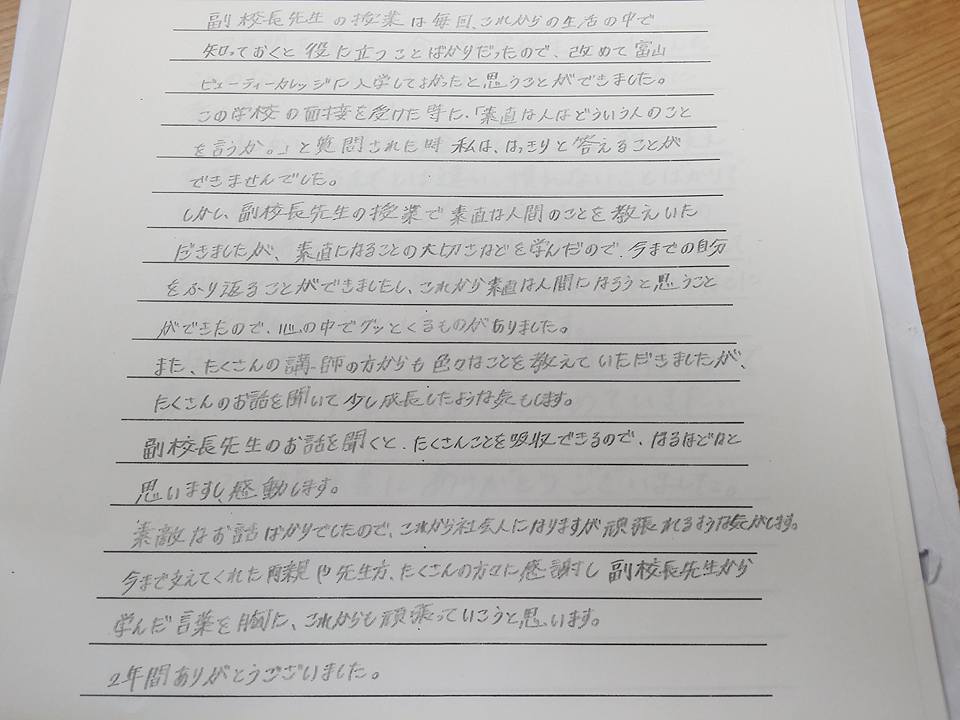 副校長先生の授業は毎回、これからの生活の中で
知っておくと役に立つことばかりだったので、改めて富山
ビューティーカレッジに入学してよかったと思うことができました。
この学校の面接を受けた時に、「素直な人はどういう人のこと
を言うか。」と質問された時 私は、はっきりと答えることが
できませんでした。
しかし、副校長先生の授業で素直な人間のことを教えいた
だきましたが、素直になることの大切さなどを学んだので、今までの自分
をふり返ることができましたし、これから素直な人間になろうと思うこと
ができたので、心の中でグッとくるものがありました。
また、たくさんの講師の方からも色々なことを教えていただきましたが、
たくさんのお話を聞いて少し成長したような気もします。
副校長先生のお話を聞くと、たくさんことを吸収できるので、なるほどなと
思いますし感動します。
素敵なお話ばかりでしたので、これから社会人になりますが頑張れるような気がします。
今まで支えてくれた両親や先生方、たくさんの方々に感謝し副校長先生から
学んだ言葉を胸に、これからも頑張っていこうと思います。
2年間ありがとうございました。